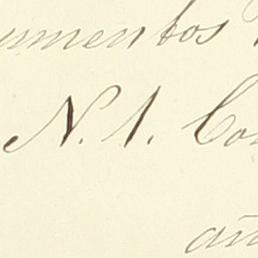 umentos
N. 1. Co
añ